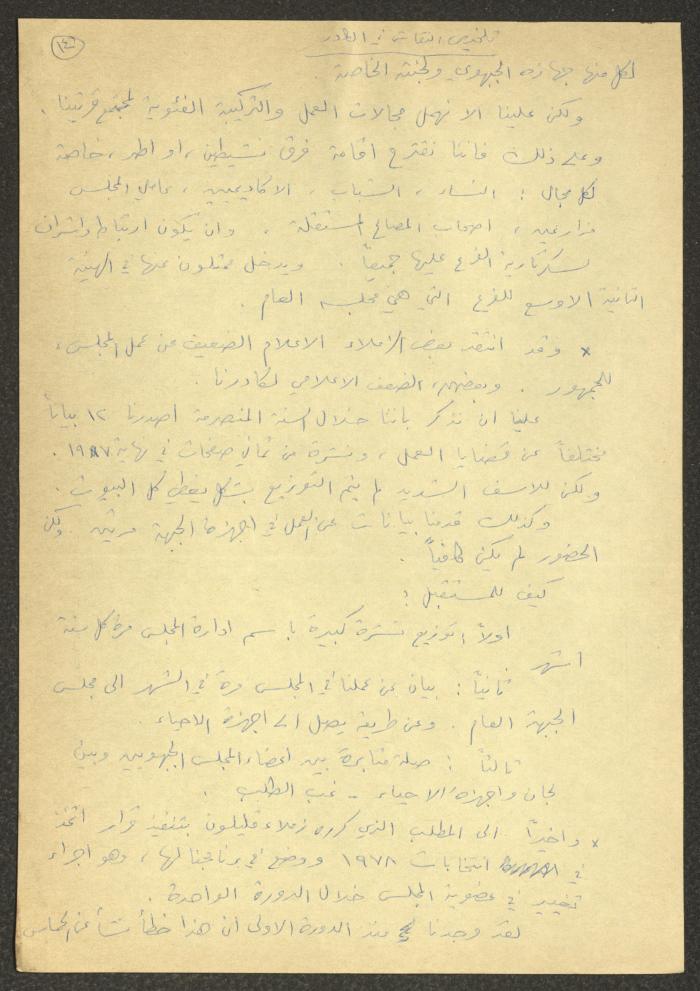 ١٤
تلخيص النقاش في الكادر
لكل منها جهازه الجبهوي ولجنته الخاصة .
ولكن علينا الا نهمل مجالات العمل والتركيبة الفئوية لمجتمع قريتنا .
وعلى ذلك فاننا نقترح اقامة فرق نشيطين ، او اطر ، خاصة
لكل مجال : النساء ، الشباب ، الاكاديميين ، عاملي المجلس
مزارعين ، اصحاب المصالح المستقلة . وان يكون ارتباط واشراف
سكرتارية الفرع عليها جميعاً . ويدخل ممثلون عنها في الهيئة
الثانية الاوسع للفرع التي هي مجلسه العام .
× وقد انتقد بعض الزملاء الاعلام الضعيف عن عمل المجلس ،
للجمهور . وبعضهم ، الضعف الاعلامي لكادرنا .
علينا ان نذكر باننا خلال السنة المنصرمة اصدرنا ١٢ بياناً
مختلفاً عن قضايا العمل ، ونشرة من ثماني صفحات في نهاية ١٩٨٧ .
ولكن للاسف الشديد لم يتم التوزيع بشكل يغطي كل البيوت .
وكذلك قدمنا بيانات عن العمل في اجهزة الجبهة مرتين . ولكن
الحضور لم يكن كافياً .
كيف للمستقبل ؟
اولاً : توزيع نشرة كبيرة باسم ادارة المجلس مرة كل ستة
اشهر .
ثانياً : بيان عن عملنا في المجلس مرة في الشهر الى مجلس
الجبهة العام . وعن طريقه يصل الى اجهزة الاحياء .
ثالثاً : صلة مثابرة بين اعضاء المجلس الجبهويين وبين
لجان واجهزة الاحياء - غب الطلب .
× واخيراً الى المطلب الذي كرره زملاء قليلون بتنفيذ قرار اتخذ
في انتخابات ١٩٧٨ ووضع في برنامجنا لها ، وهو اجراء
تغيير في عضوية المجلس خلال الدورة الواحدة .
لقد وجدنا منذ الدورة الاولى ان هذا خطأ نشأ عن الحماس